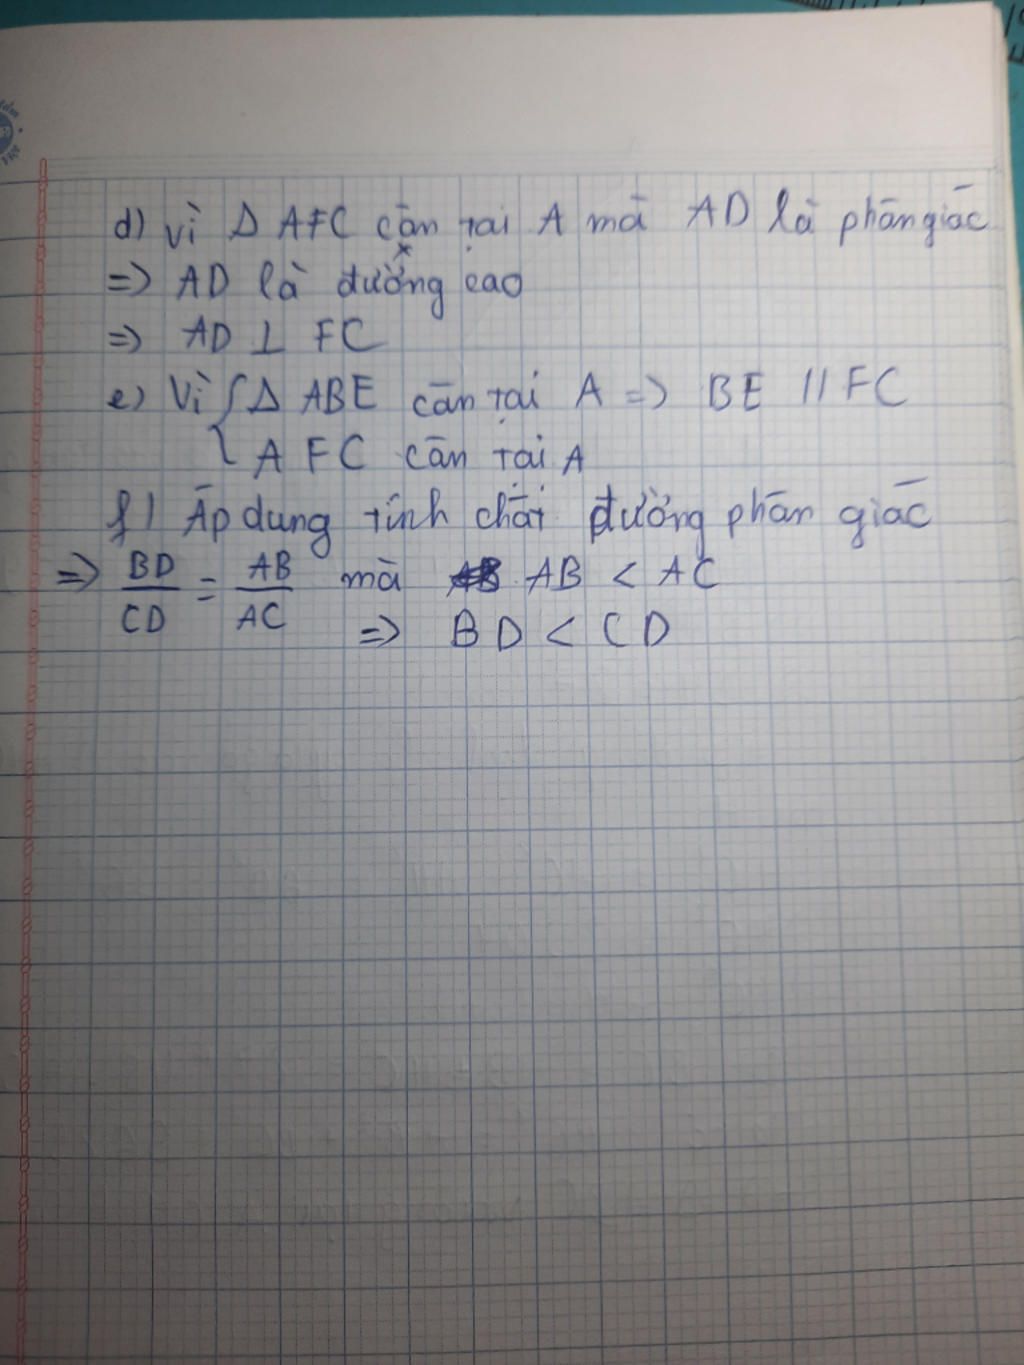 d) Vì Δ AFC cân tại A mà AD là phân giác
=> AD là đường cao
=> AD ⊥ FC
e) Vì { Δ ABE cân tại A => BE // FC
A FC cân tại A
f) Áp dụng tính chất đường phân giác
=> BD/CD = AB/AC mà AB < AC
=> BD < CD